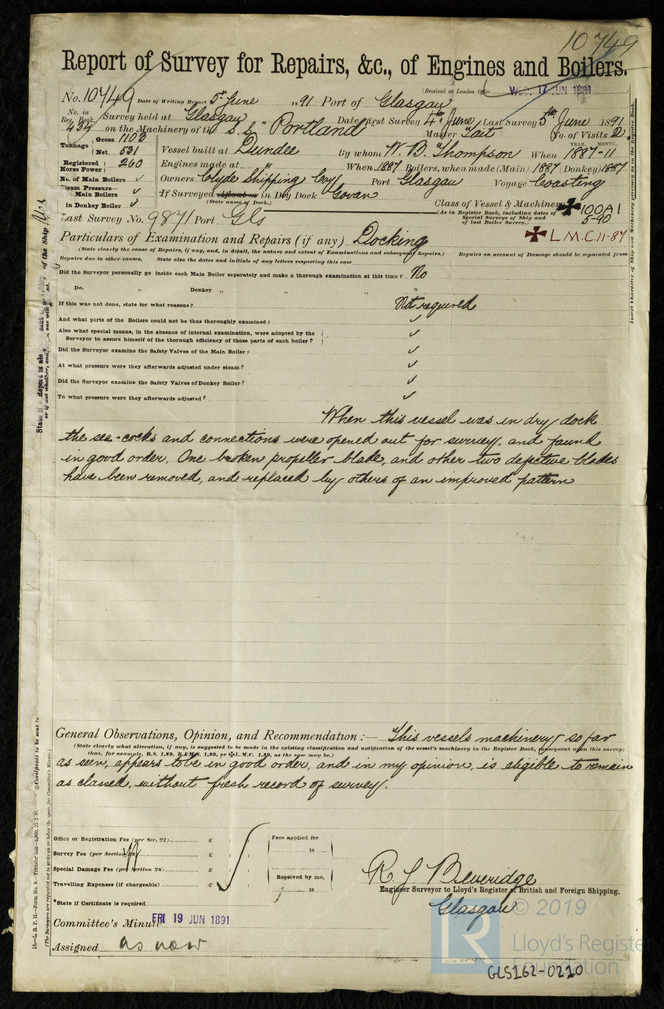 10749
Report of Survey for Repairs, &c., of Engines and Boilers.
(Received at London Office WED. 17 JUN 1891
No. 10749 Date of Writing Report 5th June 1891 Port of Glasgow
No. in Reg. Book. 434 Survey held at Glasgow Date, first Survey 4th June, Last Survey 5th June 1891
on the Machinery of the S.S. "Portland" Master Tait (No of Visits 2)
Tonnage Gross 1103 Net 531
Vessel built at Dundee By whom W. B. Thompson When 1887-11
Registered Horse Power 260 Engines made at " When 1887 Boilers, when made (Main) 1887 (Donkey) 1887
No. of Main Boilers ✓ Owners Clyde Shipping Coy Port Glasgow Voyage Coasting
Steam Pressure— Main Boilers ✓ in Donkey Boiler ✓
If Surveyed Afloat or in Dry Dock Govan
(State name of Dock.)
Class of Vessel & Machinery ✠ 100A1
(As in Register Book, including dates of Special Surveys of Ship and of last Boiler Survey.) 5-90
Last Survey No. 9871 Port Gls
✠ L.M.C. 11-87
Particulars of Examination and Repairs (if any) Docking
(State clearly the cause of Repairs, if any, and, in detail, the nature and extent of Examinations and subsequent Repairs.) Repairs on account of Damage should be separated from
Repairs due to other causes. State also the dates and initials of any letters respecting this case
Did the Surveyor personally go inside each Main Boiler separately and make a thorough examination at this time? No
Do. " Donkey " " " "
If this was not done, state for what reasons? Not required
And what parts of the Boilers could not be thus thoroughly examined? ✓
Also what special means, in the absence of internal examination, were adopted by the
Surveyor to assure himself of the thorough efficiency of those parts of each boiler? ✓
Did the Surveyor examine the Safety Valves of the Main Boiler? ✓
At what pressure were they afterwards adjusted under steam? ✓
Did the Surveyor examine the Safety Valves of Donkey Boiler? ✓
To what pressure were they afterwards adjusted? ✓
When this vessel was in dry dock
the sea-cocks and connections were opened out for survey, and found
in good order. One broken propeller blade, and other two defective blades
have been removed, and replaced by others of an improved pattern
General Observations, Opinion, and Recommendation :— This vessels machinery so far
(State clearly what alteration, if any, is suggested to be made in the existing classification and notification of the vessel's machinery in the Register Book, consequent upon this survey;
thus, for example, B.S. 1,89, B.&M.S. 1,89, or L.M.C. 1,89, as the case may be.)
as seen, appears to be in good order, and in my opinion, is eligible to remain
as classed, without fresh record of survey.
Office or Registration Fee (per Sec. 27) £
Survey Fee (per Section £
Special Damage Fee (per Section 28) £
Travelling Expenses (if chargeable) £
Fees applied for
18
Received by me,
18
*State if Certificate is required
R J Beveridge
Engineer Surveyor to Lloyd's Register of British and Foreign Shipping.
Glasgow
Committee's Minute FRI 19 JUN 1891
Assigned as now
© 2019
Lloyd's Register
Foundation
GLS162-0210